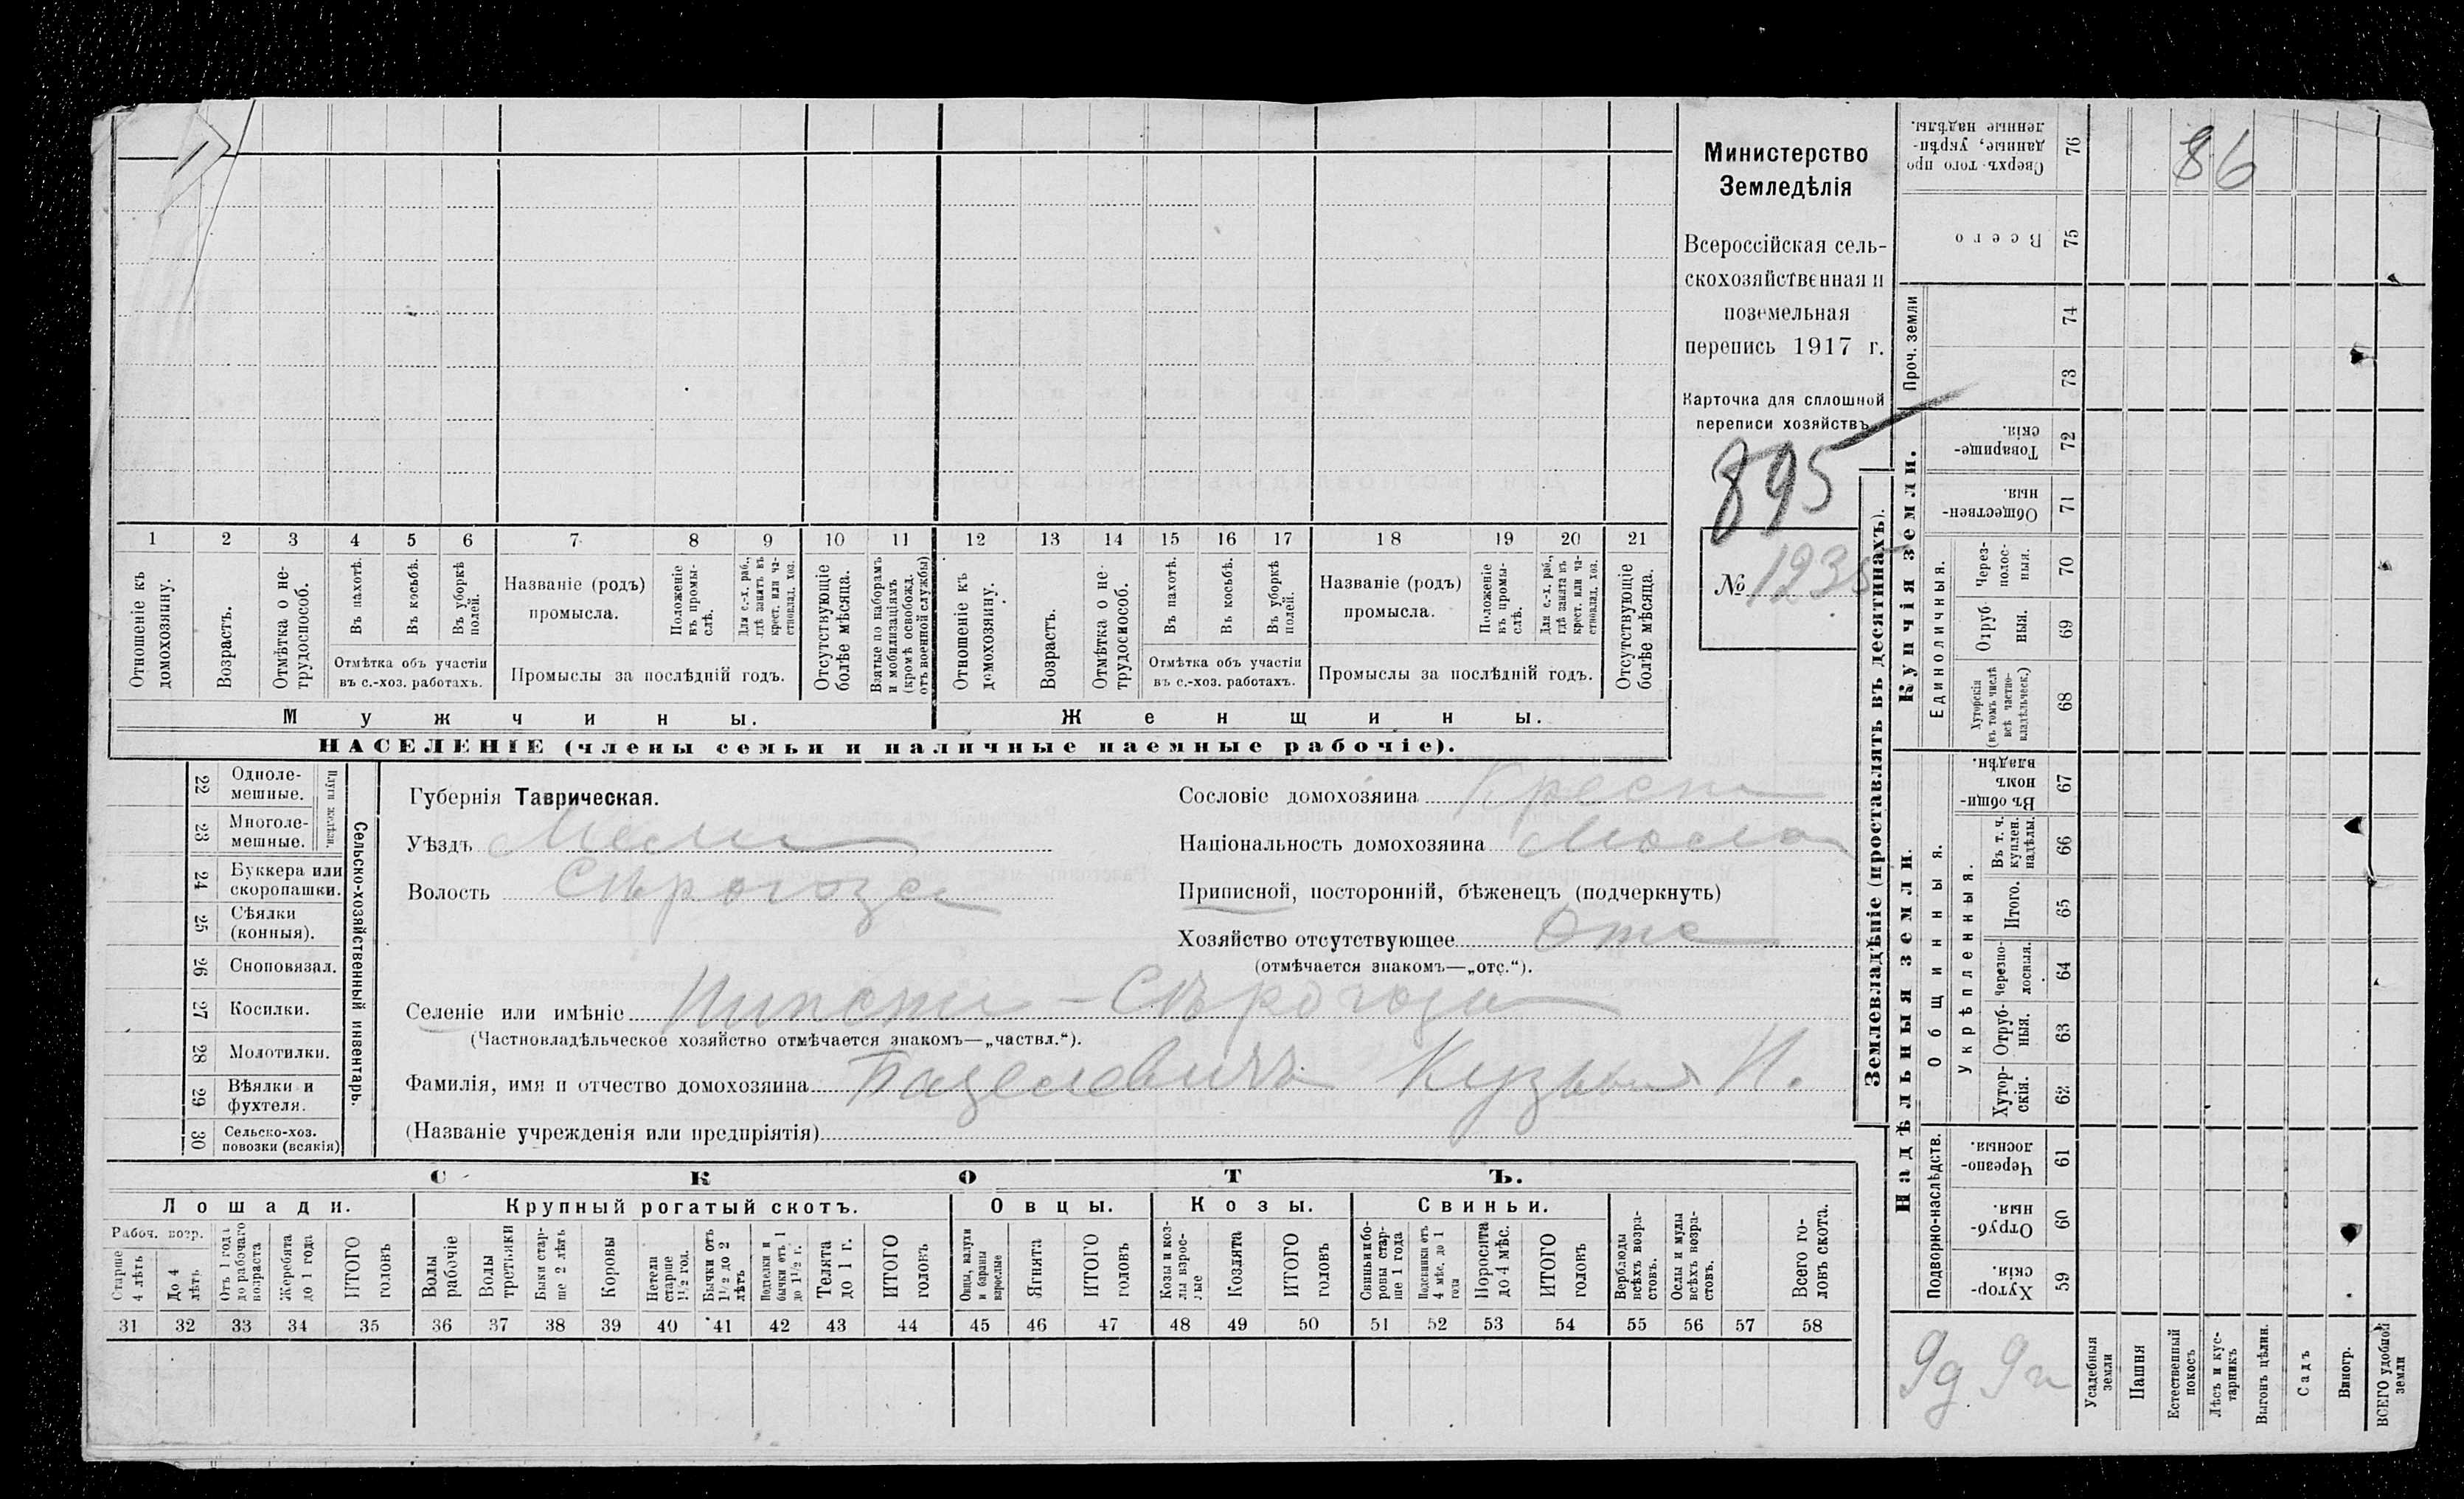 Министерство
Земледѣлія
Всероссійская сель-
скохозяйственная и
поземельная
перепись 1917 г.
Карточка для сплошной
переписи хозяйствъ
895
№ 1235
1 2 3 4 5 6 7 8 9 10 11 12 13 14 15 16 17 18 19 20 21
Отношеніе къ домохозяину.
Возрастъ.
Отмѣтка о не-трудоспособ.
Въ пахотѣ.
Въ косьбѣ.
Въ уборкѣ полей.
Отмѣтка объ участіи
въ с.-хоз. работахъ.
Названіе (родъ)
промысла.
Положеніе въ промы-слѣ.
Для с.-х. раб., гдѣ занятъ въ крест. или ча-стновлад. хоз.
Промыслы за послѣдній годъ.
Отсутствующіе болѣе мѣсяца.
Взятые по наборамъ и мобилизаціямъ (кромѣ освобожд. отъ военной службы)
Отношеніе къ домохозяину.
Возрастъ.
Отмѣтка о не-трудоспособ.
Въ пахотѣ.
Въ косьбѣ.
Въ уборкѣ полей.
Отмѣтка объ участіи
въ с.-хоз. работахъ.
Названіе (родъ)
промысла.
Положеніе въ промы-слѣ.
Для с.-х. раб., гдѣ занята въ крест. или ча-стновлад. хоз.
Промыслы за послѣдній годъ.
Отсутствующіе болѣе мѣсяца.
Мужчины. Женщины.
НАСЕЛЕНІЕ (члены семьи и наличные наемные рабочіе).
Сельско-хозяйственный инвентарь.
Плуги желѣзн.
22 Одноле-мешные.
23 Многоле-мешные.
24 Буккера или скоропашки.
25 Сѣялки (конныя).
26 Сноповязал.
27 Косилки.
28 Молотилки.
29 Вѣялки и фухтеля.
30 Сельско-хоз. повозки (всякія)
Губернія Таврическая.
Уѣздъ Мели
Волость Сѣрогозс
Сословіе домохозяина Крест
Національность домохозяина Мало
Приписной, посторонній, бѣженецъ (подчеркнуть)
Хозяйство отсутствующее Отс
(отмѣчается знакомъ—„отс.“).
Селеніе или имѣніе Нижни - Сѣрогозы
(Частновладѣльческое хозяйство отмѣчается знакомъ—„частвл.“).
Фамилія, имя и отчество домохозяина Кузьма И.
(Названіе учрежденія или предпріятія)
СКОТЪ.
Лошади. Крупный рогатый скотъ. Овцы. Козы. Свиньи.
Рабоч. возр.
Старше 4 лѣтъ
До 4 лѣтъ
Отъ 1 года до рабочаго возраста
Жеребята до 1 года
ИТОГО головъ
Волы рабочіе
Волы третьяки
Быки стар-ше 2 лѣтъ
Коровы
Нетели старше 1½ год.
Бычки отъ 1½ до 2 лѣтъ
Подтелки и бычки отъ 1 до 1½ г.
Телята до 1 г.
ИТОГО головъ
Овцы, валухи и бараны взрослые
Ягнята
ИТОГО головъ
Козы и коз-лы взрос-лые
Козлята
ИТОГО головъ
Свиньи и бо-ровы стар-ше 1 года
Подсвинки отъ 4 мѣс. до 1 года
Поросята до 4 мѣс.
ИТОГО головъ
Верблюды всѣхъ возра-стовъ.
Ослы и мулы всѣхъ возра-стовъ.
Всего го-ловъ скота.
31 32 33 34 35 36 37 38 39 40 41 42 43 44 45 46 47 48 49 50 51 52 53 54 55 56 57 58
Землевладѣніе (проставлять въ десятинахъ).
Сверхъ того про-данные, укрѣп-ленные надѣлы. 76
86
Всего 75
Проч. земли
74
73
Купчія земли.
Товарище-скія. 72
Обществен-ныя. 71
Единоличныя.
Через-полос-ныя. 70
Отруб-ныя. 69
Хуторскія (въ томъ числѣ всѣ частно-владѣльческ.) 68
Надѣльныя земли.
Общинныя.
Въ общи-номъ владѣн. 67
Укрѣпленныя.
Въ т. ч. куплен. надѣлы. 66
Итого. 65
Черезпо-лосныя. 64
Отруб-ныя. 63
Хутор-скія. 62
Подворно-наслѣдств.
Черезпо-лосныя. 61
Отруб-ныя. 60
Хутор-скія. 59
Усадебныя земли
Пашня
Естественный покосъ
Лѣсъ и кус-тарникъ
Выгонъ цѣлин.
Садъ
Виногр.
ВСЕГО удобной земли